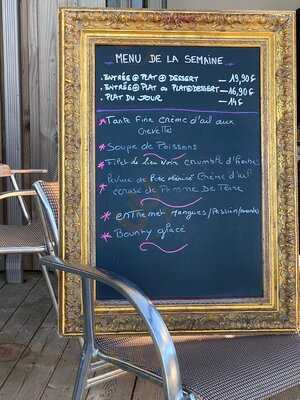 MENU DE LA SEMAINE
. ENTRÉE @ PLAT @ DESSERT — 19,90€
. ENTRÉE @ PLAT OU PLAT@DESSERT — 16,90€
. PLAT DU JOUR — 14€
* Tarte fine Crème d'ail aux
Crevette
* Soupe de Poissons
* Filet de Lieu Noir crumble d'herbes
* Crème d'ail
écrasé de Pomme De Terre
* entremet Mangues/Passion/
* Bounty glacé